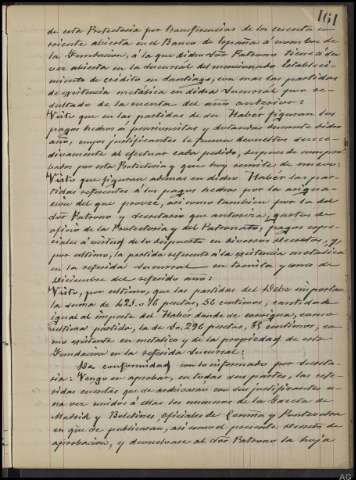 161
de esta Protectoria por transferencias de la cuenta co-
rriente abierta en el Banco de España á nombre de
la Fundacion, á la que dicho Sor Patrono tiene á su
vez abierta en la sucursal del mencionado Estableci-
miento de crédito en Santiago, con mas las partidas
de existencia metálica en dicha Sucursal por re-
sultado de la cuenta del año anterior:
Visto que en las partidas de su Haber figuran los
pagos hechos á pensionistas y dotandas durante dicho
año, cuyos justificantes la fueron devueltos
al efecto
por esta Protectoria y que hoy remite de nuevo:
Visto que figuran ademas en dicho Haber las par-
tidas referentes á los pagos hechos por la asigna-
ción del que provee, asi como tambien por la del
Sor Patrono y Secretario que autoriza, gastos de
oficio de la Protectoria y del Patronato, y pagos espe-
ciales á virtud de lo dispuesto en diversos decretos, y,
por ultimo, la partida referente á la existencia metalica
en la referida Sucursal en treinta y uno de
Diciembre del referido año:
Visto, por ultimo, que las partidas del Debe importan
la suma de pesetas, 56 centimos, cantidad
igual al importe del Haber donde se consigna, como
ultima partida, la de 296 pesetas, centimos, co-
mo existente en metalico y de la propiedad de esta
Fundacion en la referida Sucursal:
De conformidad con lo informado por Secreta-
ria: Vengo en aprobar, en todas sus partes, las refe-
ridas cuentas que se archivarán con sus justificantes u-
na vez unidos á ellas los numeros de la Gaceta de
Madrid y Boletines Oficiales de Coruña y Pontevedra
en que se publicaran, asi como el presente decreto de
aprobacion, y devuelvase al Sor Patrono la hoja
AG